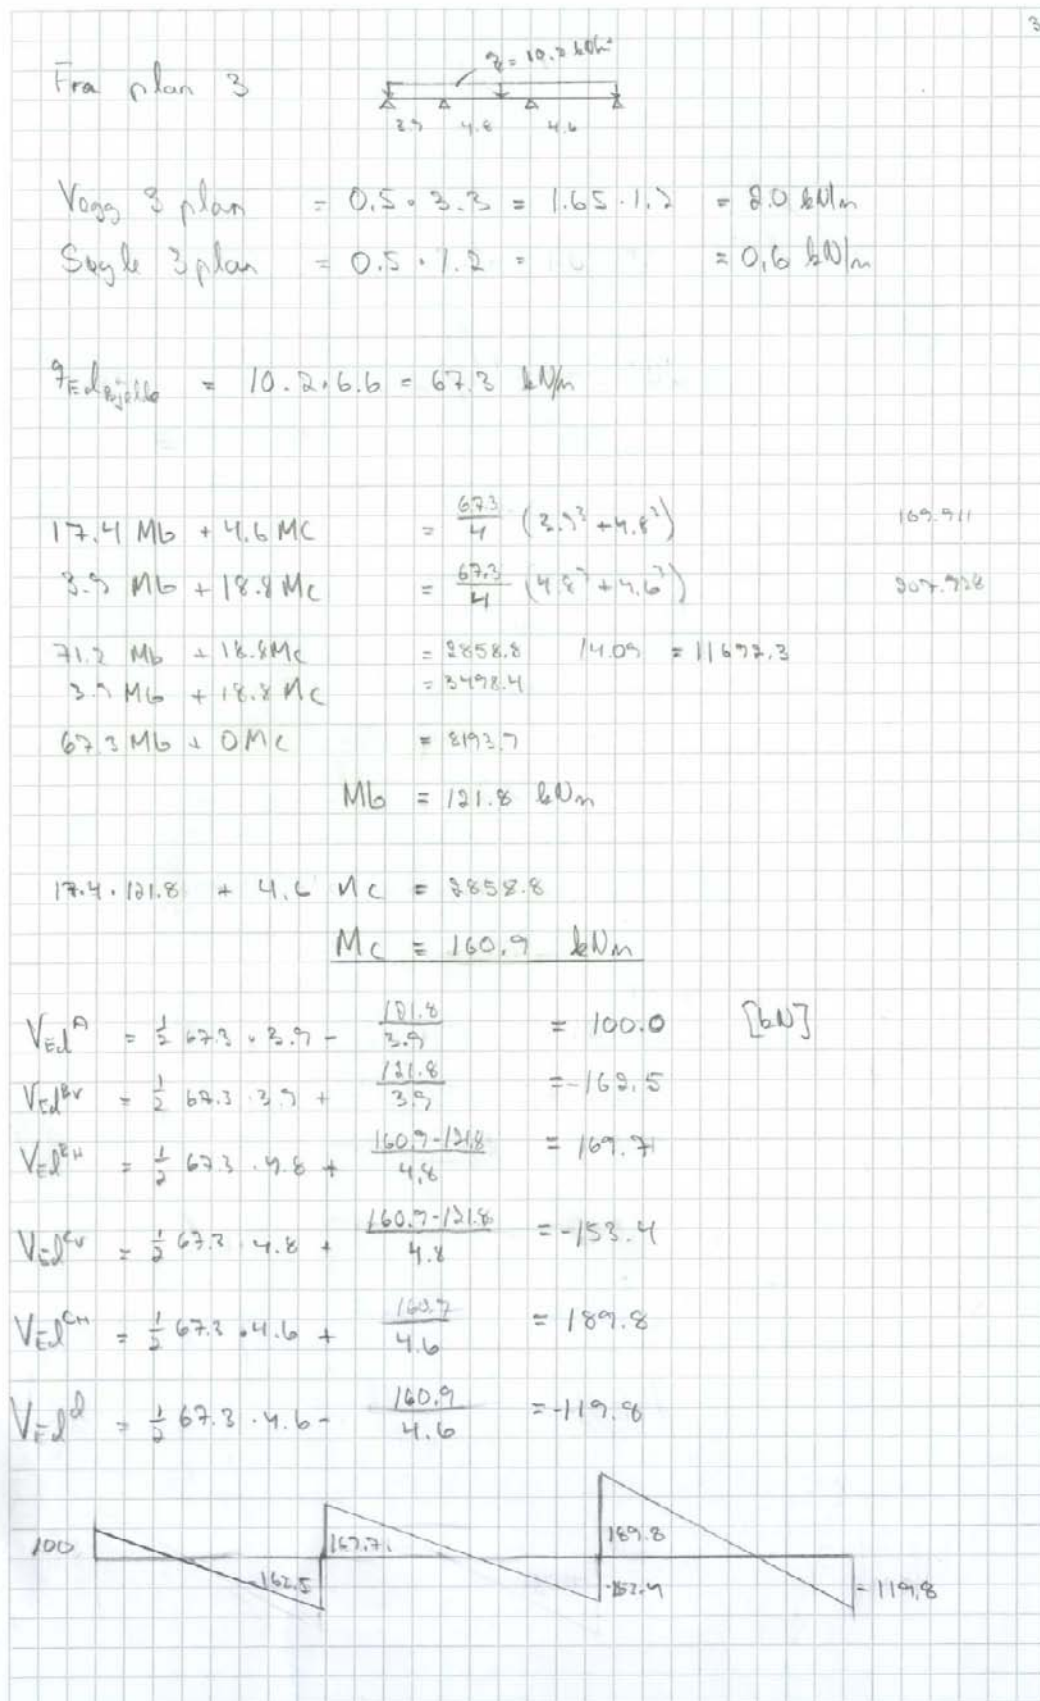 3
Fra plan 3
q = 10.2 kN/m²
3.9 4.8 4.6
Vegg 3 plan = 0.5 · 3.3 = 1.65 · 1.2 = 2.0 kN/m
Søyle 3 plan = 0.5 · 1.2 = = 0,6 kN/m
qEd = 10.2 · 6.6 = 67.3 kN/m
17.4 Mb + 4.6 MC = 67.3/4 (3.9³ + 4.8³) 169.911
3.9 Mb + 18.8 MC = 67.3/4 (4.8³ + 4.6³) 207.928
71.2 Mb + 18.8 MC = 2858.8 /4.09 = 11692.3
3.9 Mb + 18.8 MC = 3498.4
67.3 Mb + 0 MC = 8193.7
Mb = 121.8 kNm
17.4 · 121.8 + 4.6 MC = 2858.8
MC = 160.9 kNm
VEd^A = 1/2 67.3 · 3.9 - 121.8/3.9 = 100.0 [kN]
VEd^BV = 1/2 67.3 · 3.9 + 121.8/3.9 = -162.5
VEd^BH = 1/2 67.3 · 4.8 + 160.9-121.8/4.8 = 169.7
VEd^CV = 1/2 67.3 · 4.8 + 160.9-121.8/4.8 = -153.4
VEd^CH = 1/2 67.3 · 4.6 + 160.9/4.6 = 189.8
VEd^d = 1/2 67.3 · 4.6 - 160.9/4.6 = -119.8
189.8
100 167.7
-162.5 -152.4 -119.8